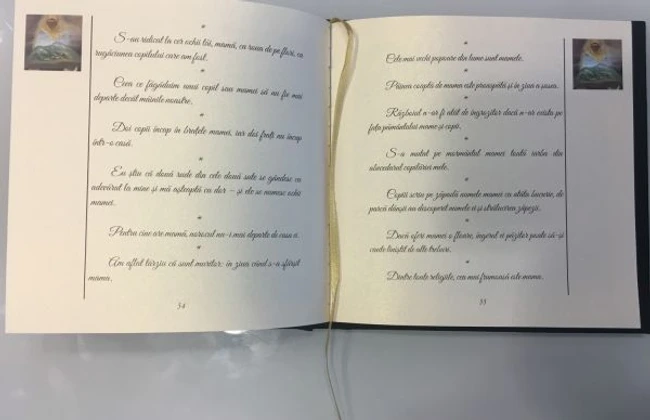 *
S-au ridicat la cer ochii tăi, mamă, ca roua de pe flori, ca
rugăciunea copilului care am fost.
*
Ceea ce făgăduim unui copil sau mamei să nu fie mai
departe decât mâinile noastre.
*
Doi copii încap în brațele mamei, iar doi frați nu încap
într-o casă.
*
Eu știu că două rude din cele două sute se gândesc cu
adevărat la mine și mă așteaptă cu dor – și ele se numesc ochii
mamei.
*
Pentru cine are mamă, norocul nu-i mai departe de casa a
*
Am aflat târziu că sunt muritor: în ziua când s-a sfârșit
mama.
54
*
Cele mai vechi popoare din lume sunt mamele.
*
Pâinea coaptă de mama este proaspătă și în ziua a șasea.
*
Războiul n-ar fi atât de îngrozitor dacă n-ar exista pe
fața pământului mame și copii.
*
S-a mutat pe mormântul mamei toată iarba din
abecedarul copilăriei mele.
*
Copiii scriu pe zăpadă numele mamei cu atâta bucurie, de
parcă dânșii au descoperit numele ei și strălucirea zăpezii.
*
Dacă oferi mamei o floare, îngerul ei păzitor poate să-și
caute liniștit de alte treburi.
*
Dintre toate religiile, cea mai frumoasă este mama.
55